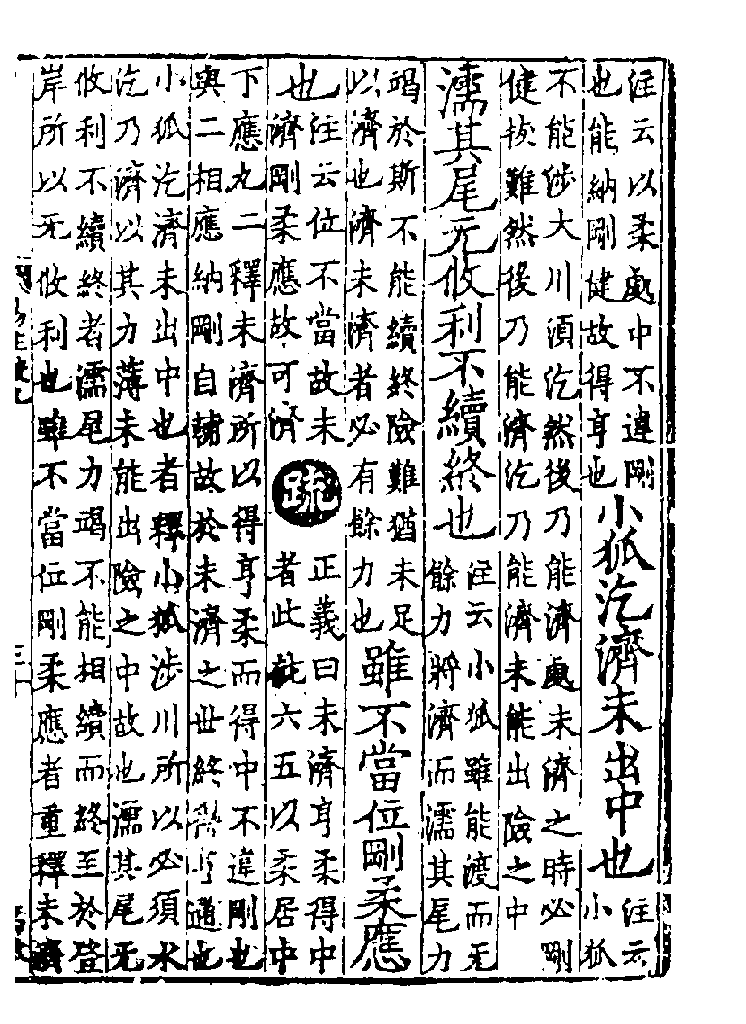 注云以柔處中不違剛
也能納剛健故得亨也
小狐汔濟未出中也
注云
小狐
不能涉大川須汔然後乃能濟處未濟之時必剛
健拔難然後乃能濟汔乃能濟未能出險之中
濡其尾无攸利不續終也
注云小狐雖能渡而无
餘力將濟而濡其尾力
竭於斯不能續終險難猶未足
以濟也濟未濟者必有餘力也
雖不當位剛柔應
也
注云位不當故未
濟剛柔應故可濟
疏
正義曰未濟亨柔得中
者此就六五以柔居中
下應九二釋未濟所以得亨柔而得中不違剛也
與二相應納剛自輔故於未濟之世終得亨通也
小狐汔濟未出中也者釋小狐涉川所以必須水
汔乃濟以其力薄未能出險之中故也濡其尾无
攸利不續終者濡尾力竭不能相續而終至於登
岸所以无攸利也雖不當位剛柔應者重釋未濟